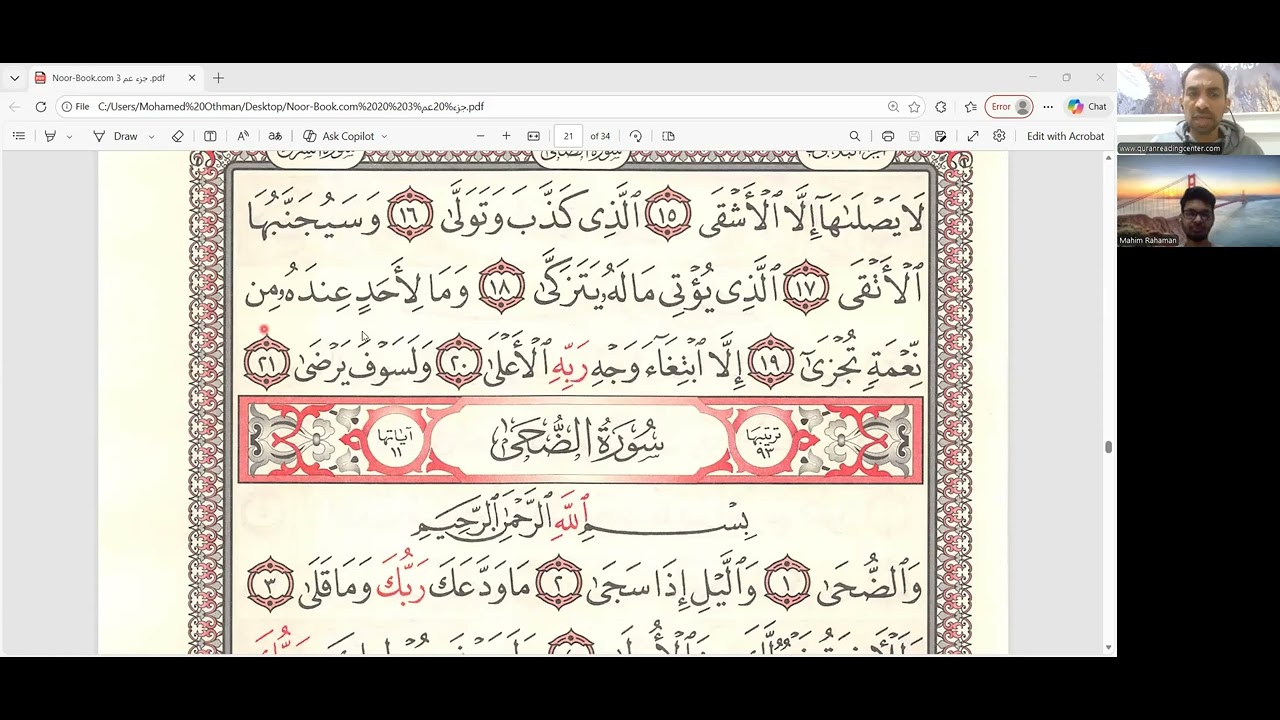 Noor-Book.com جزء عم 3.pdf
File
C:/Users/Mohamed%20Othman/Desktop/Noor-Book.com%2020%203%جزء%20عم.pdf
Error
Chat
Draw
Ask Copilot
21
of 34
Edit with Acrobat
لَا يَصْلَىٰهَآ إِلَّا ٱلْأَشْقَى ١٥ ٱلَّذِى كَذَّبَ وَتَوَلَّىٰ ١٦ وَسَيُجَنَّبُهَا
ٱلْأَتْقَى ١٧ ٱلَّذِى يُؤْتِى مَالَهُۥ يَتَزَكَّىٰ ١٨ وَمَا لِأَحَدٍ عِندَهُۥ مِن
نِّعْمَةٍ تُجْزَىٰٓ ١٩ إِلَّا ٱبْتِغَآءَ وَجْهِ رَبِّهِ ٱلْأَعْلَىٰ ٢٠ وَلَسَوْفَ يَرْضَىٰ ٢١
ترتيبها ٩٣
سُورَةُ الضُّحَىٰ
آياتها ١١
بِسْمِ ٱللَّهِ ٱلرَّحْمَٰنِ ٱلرَّحِيمِ
وَٱلضُّحَىٰ ١ وَٱلَّيْلِ إِذَا سَجَىٰ ٢ مَا وَدَّعَكَ رَبُّكَ وَمَا قَلَىٰ ٣
www.quranreadingcenter.com
Mahim Rahaman